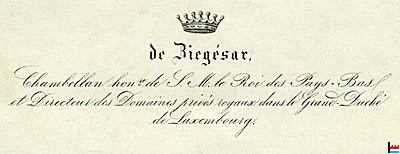 de Ziegésar,
Chambellan hon.re de S. M. le Roi des Pays-Bas
et Directeur des Domaines privés royaux dans le Grand-Duché
de Luxembourg.